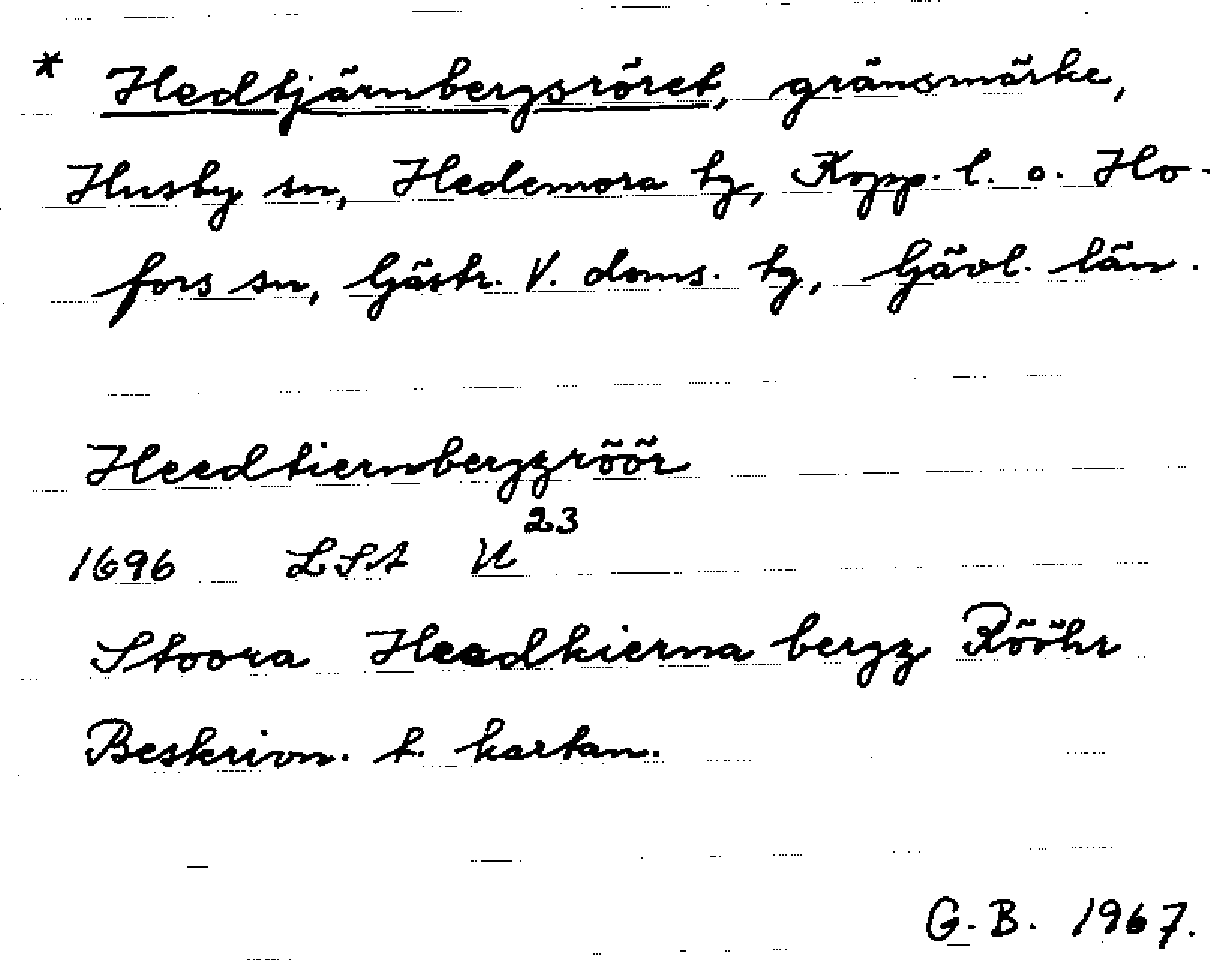 * Hedtjärnbergsröret, gränsmärke,
Husby sn, Hedemora tg, Kopp. l. o. Ho-
fors sn, Gästr. V. doms. tg, Gävl. län.
Heedtiernbergzröör
1696 LSA U²³
Stoora Heedkierna bergz Rööhr
Beskrivn. t. kartan.
G. B. 1967.